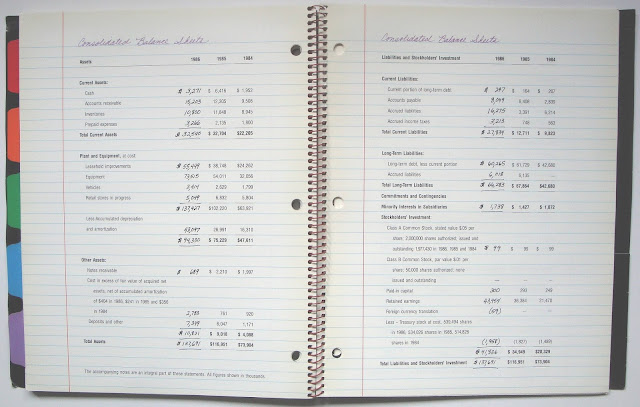 Consolidated Balance Sheets
Assets 1986 1985 1984
Current Assets:
Cash $ 3,271 $ 6,416 $ 1,952
Accounts receivable 15,203
Inventories 10,800 11,648
Prepaid expenses 3,266 2,135 1,800
Total Current Assets $ 32,540 $ 32,704 $22,265
Plant and Equipment, at cost:
Leasehold improvements $ 55,449 $ 38,745 $24,262
Equipment 73,615 54,011 32,056
Vehicles 2,623 1,799
Retail stores in progress 5,049 6,892 5,804
$ 137,427 $102,220 $63,921
Less-Accumulated depreciation
and amortization 43,047 26,991 16,310
$ 94,380 $ 75,229 $47,611
Other Assets:
Notes receivable $ 689 $ 2,210 $ 1,997
Cost in excess of fair value of acquired net
assets, net of accumulated amortization
of $404 in 1986, $241 in 1985 and $355
in 1984 2,783 761 920
Deposits and other 7,349 6,047 1,171
$ 10,821 $ 9,018 $ 4,088
Total Assets $ 137,691 $116,951 $73,964
The accompanying notes are an integral part of these statements. All figures shown in thousands.
Consolidated Balance Sheets
Liabilities and Stockholders' Investment 1986 1985 1984
Current Liabilities:
Current portion of long-term debt $ 387 $ 164
Accounts payable
Accrued liabilities
Accrued income taxes 746
Total Current Liabilities $ 27,834 $ 12,711 $ 9,823
Long-Term Liabilities:
Long-term debt, less current portion $ 60,265 $ 61,729 $ 42,680
Accrued liabilities 6,018 6,135 —
Total Long-Term Liabilities $ 66,283 $ 67,864 $42,680
Commitments and Contingencies
Minority Interests in Subsidiaries $ 1,738 $ 1,427
Stockholders' Investment
Class A Common Stock, stated value $.05 per
share; 2,000,000 shares authorized; issued and
outstanding 1,977,430 in 1986, 1985 and 1984 $ 99 $ 99 $ 99
Class B Common Stock, par value $.01 per
share; 50,000 shares authorized; none
issued and outstanding — — —
Paid-in capital 300
Retained earnings
Foreign currency translation — —
Less - Treasury stock at cost,
in 1986, 534,626 shares in 1985,
shares in 1984
$ 41,836 $ 34,949
Total Liabilities and Stockholders' Investment $ 137,691 $116,951 $73,964